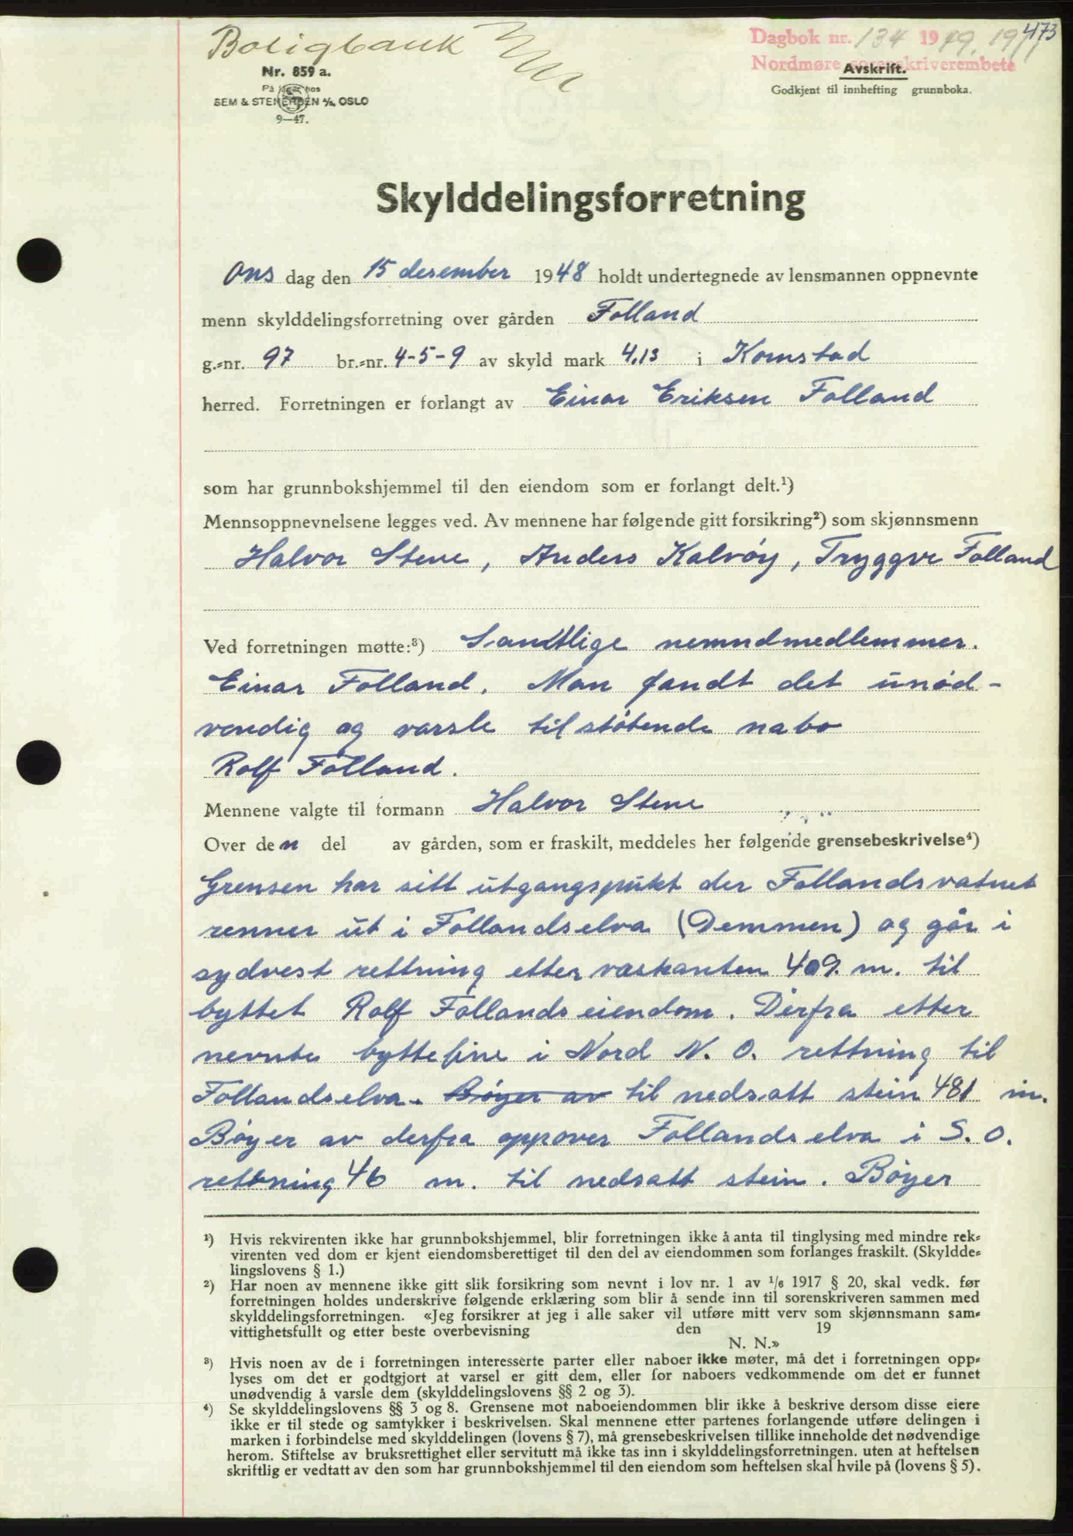 473
Boligbank
Dagbok nr. 134 1949
Nordmøre sorenskriverembete
Nr. 859 a.
På lager hos
SEM & STENERSEN A/S, OSLO
9—47.
Avskrift.
Godkjent til innhefting grunnboka.
Skylddelingsforretning
Ons dag den 15 desember 1948 holdt undertegnede av lensmannen oppnevnte
menn skylddelingsforretning over gården Folland
g.-nr. 97 br.-nr. 4-5-9 av skyld mark 4,13 i Kornstad
herred. Forretningen er forlangt av Einar Eriksen Folland
som har grunnbokshjemmel til den eiendom som er forlangt delt.¹)
Mennsoppnevnelsene legges ved. Av mennene har følgende gitt forsikring²) som skjønnsmenn
Halvor Stene, Anders Kalvøy, Tryggve Folland
Ved forretningen møtte:³) Samtlige nemndmedlemmer.
Einar Folland. Man fandt det unød-
vendig og varsle tilstøtende nabo
Rolf Folland.
Mennene valgte til formann Halvor Stene
Over den del av gården, som er fraskilt, meddeles her følgende grensebeskrivelse⁴)
Grensen har sitt utgangspukt der Follandsvatnet
renner ut i Follandselva (Demmen) og går i
sydvest rettning etter vaskanten 409 m. til
byttet Rolf Follands eiendom. Derfra etter
nevnte bytteline i Nord N. O. rettning til
Follandselva. Bøyer av til nedsatt stein 481 m.
Bøyer av derfra oppover Follandselva i S. O.
rettning 46 m. til nedsatt stein. Bøyer
¹) Hvis rekvirenten ikke har grunnbokshjemmel, blir forretningen ikke å anta til tinglysing med mindre rek-
virenten ved dom er kjent eiendomsberettiget til den del av eiendommen som forlanges fraskilt. (Skyldde-
lingslovens § 1.)
²) Har noen av mennene ikke gitt slik forsikring som nevnt i lov nr. 1 av 1/6 1917 § 20, skal vedk. før
forretningen holdes underskrive følgende erklæring som blir å sende inn til sorenskriveren sammen med
skylddelingsforretningen. «Jeg forsikrer at jeg i alle saker vil utføre mitt verv som skjønnsmann sam-
vittighetsfullt og etter beste overbevisning den 19
N. N.»
³) Hvis noen av de i forretningen interesserte parter eller naboer ikke møter, må det i forretningen opp-
lyses om det er godtgjort at varsel er gitt dem, eller for naboers vedkommende om det er funnet
unødvendig å varsle dem (skylddelingslovens §§ 2 og 3).
⁴) Se skylddelingslovens §§ 3 og 8. Grensene mot naboeiendommen blir ikke å beskrive dersom disse eiere
ikke er til stede og samtykker i beskrivelsen. Skal mennene etter partenes forlangende utføre delingen i
marken i forbindelse med skylddelingen (lovens § 7), må grensebeskrivelsen tillike inneholde det nødvendige
herom. Stiftelse av bruksrettighet eller servitutt må ikke tas inn i skylddelingsforretningen. uten at heftelsen
skriftlig er vedtatt av den som har grunnbokshjemmel til den eiendom som heftelsen skal hvile på (lovens § 5).